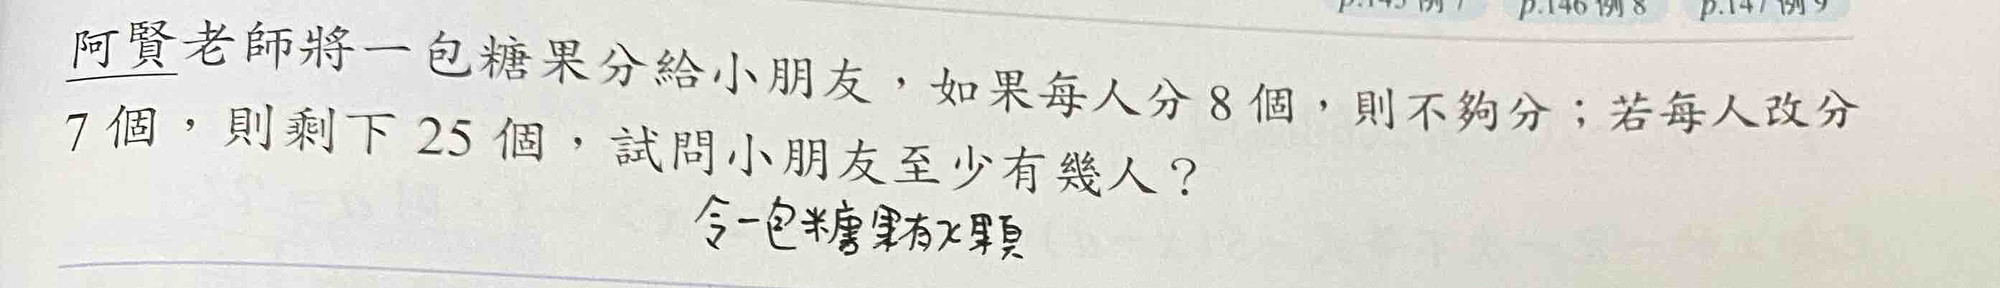 p.145 例 7 p.146 例 8 p.147 例 9
阿賢老師將一包糖果分給小朋友，如果每人分 8 個，則不夠分；若每人改分
7 個，則剩下 25 個，試問小朋友至少有幾人？
令一包糖果有x顆